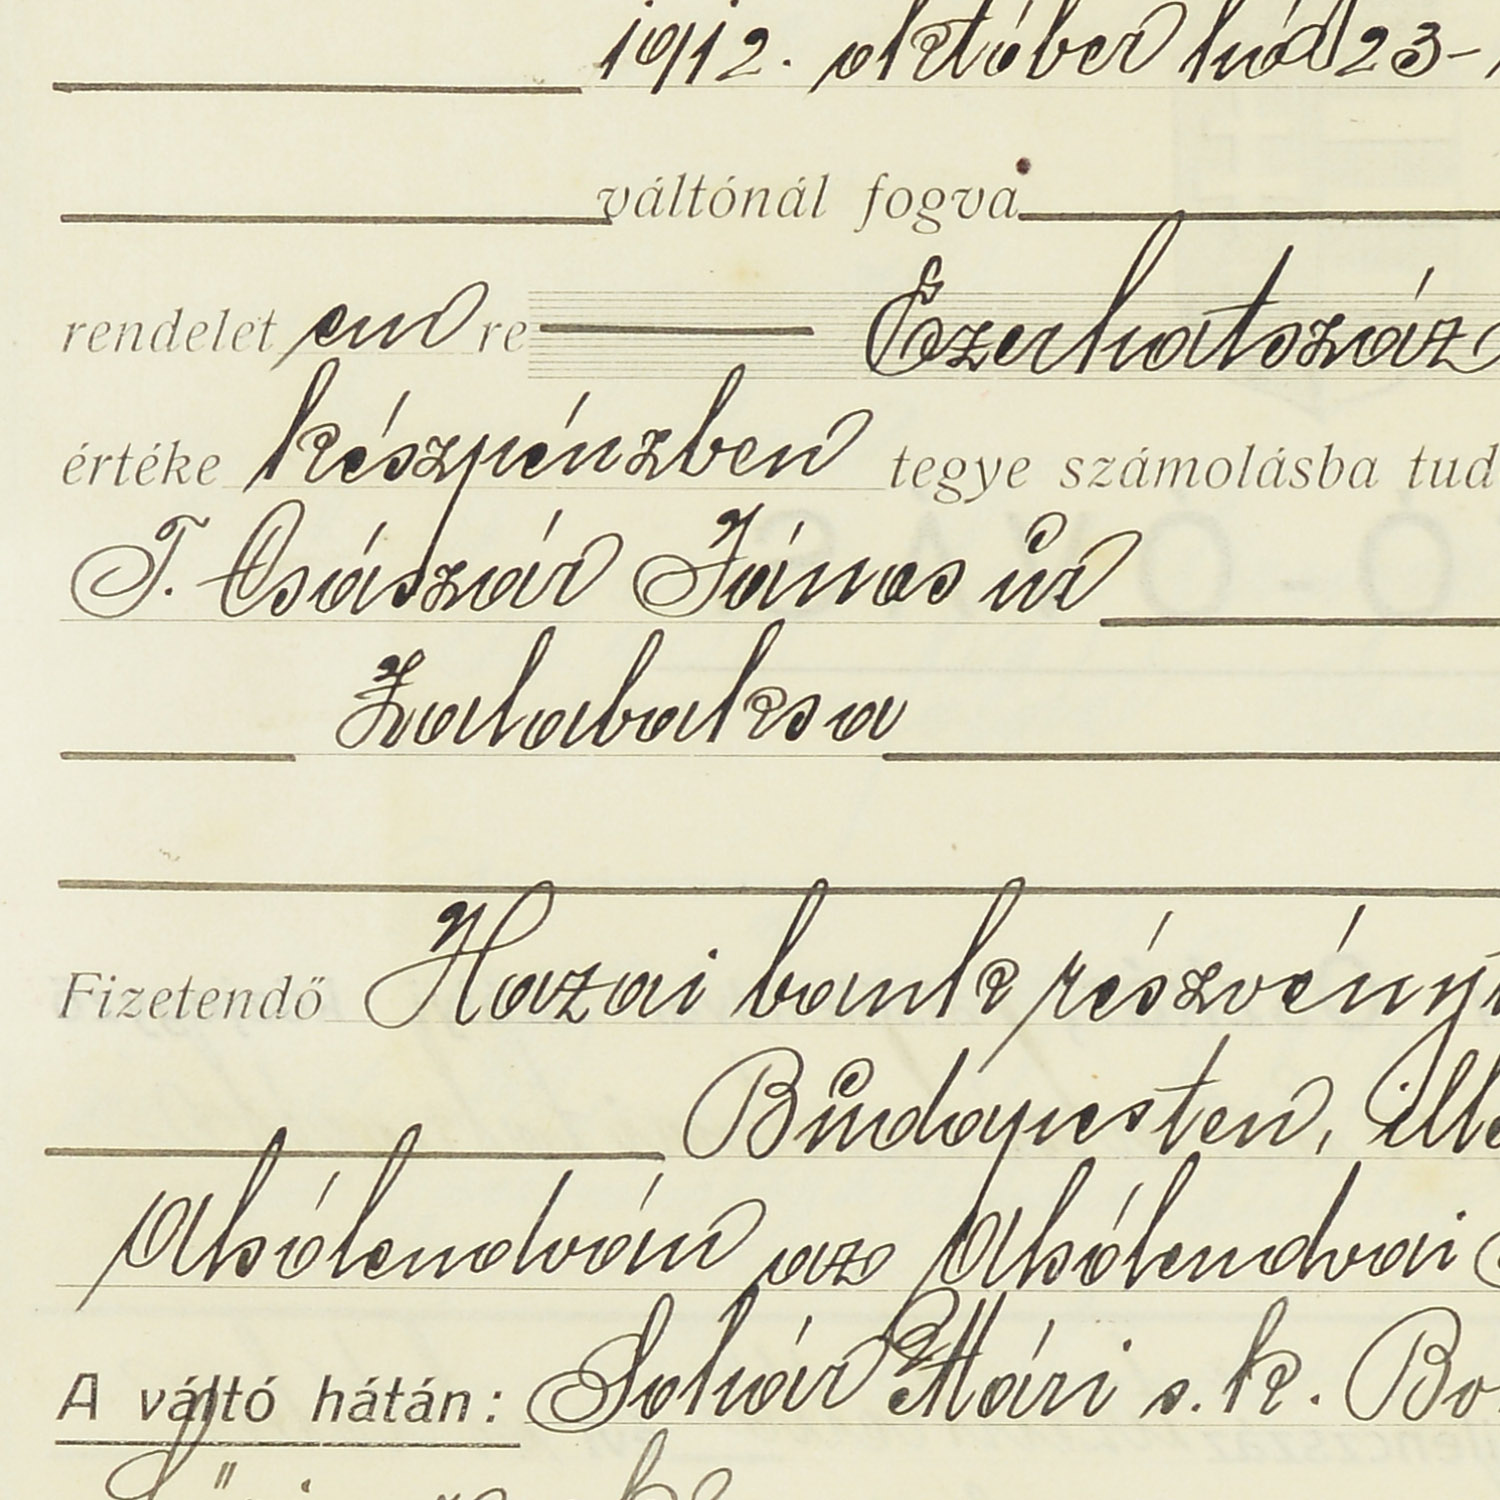 1912. október hód 23-
váltónál fogva
rendelet en re Ezerhatszáz
értéke készpénzben tegye számolásba tud
T. Császár János úr
Zalabaksa
Fizetendő Hazai bank részvényt
Budapesten, ille
Alsólendván az Alsólendvai
A váltó hátán: Sohár Mári s. k. Bo